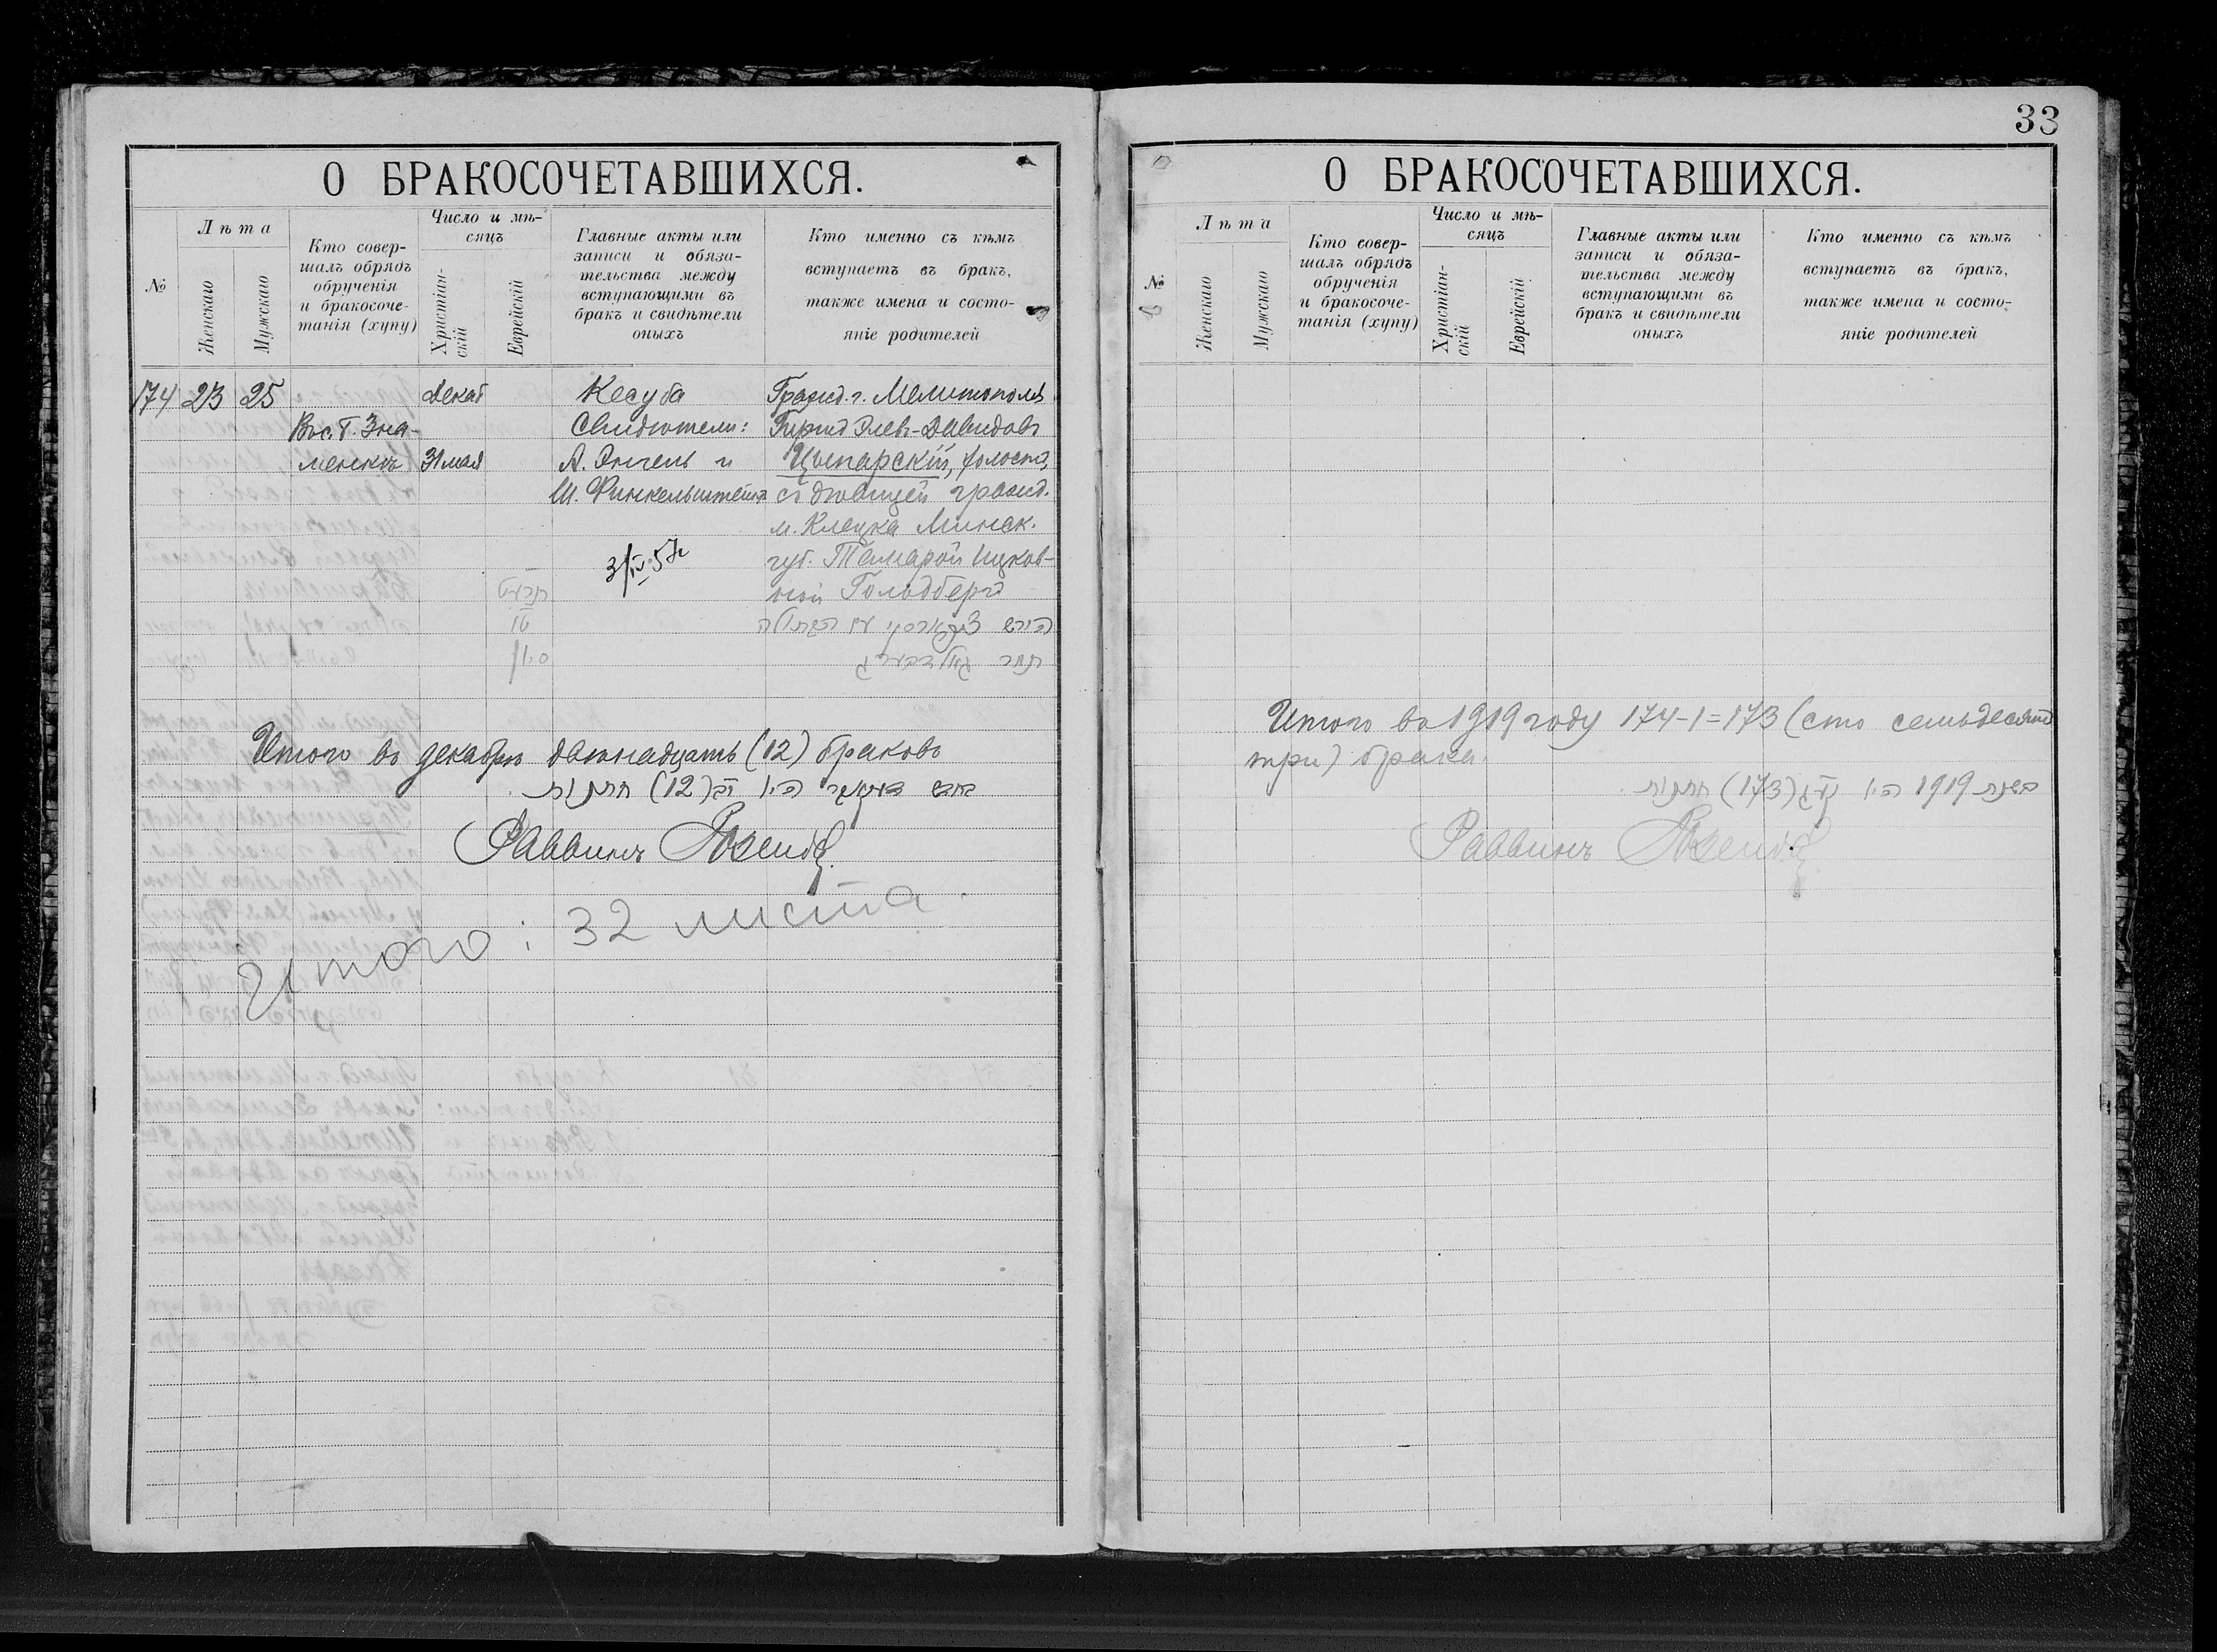 О БРАКОСОЧЕТАВШИХСЯ.
№
Лѣта
Женскаго
Мужскаго
Кто совер-
шалъ обрядъ
обрученія
и бракосоче-
танія (хупу)
Число и мѣ-
сяцъ
Христіан-
скій
Еврейскій
Главные акты или
записи и обяза-
тельства между
вступающими въ
бракъ и свидѣтели
оныхъ
Кто именно съ кѣмъ
вступаетъ въ бракъ,
также имена и состо-
яніе родителей
174 23 25
Зна-
менкъ
Декаб
31 мая
Кесуба
Свидѣтели:
А. Энгель и
Ш. Финкельштейнъ
3/IV.57
Гражд. г. Мелитополя
Гиршъ Элев-Давидовъ
Цыпарскій, холостъ,
съ дѣвицей гражд.
м. Клецка Минск.
губ. Тамарой Ицков-
ной Гольдбергъ
תרעט
סיון
הירש עם הבתולה
תמר גאלדבערג
Итого въ декабрѣ двѣнадцать (12) браковъ
היו יב (12) חתנות
Раввинъ
Итого: 32 листа
33
О БРАКОСОЧЕТАВШИХСЯ.
№
Лѣта
Женскаго
Мужскаго
Кто совер-
шалъ обрядъ
обрученія
и бракосоче-
танія (хупу)
Число и мѣ-
сяцъ
Христіан-
скій
Еврейскій
Главные акты или
записи и обяза-
тельства между
вступающими въ
бракъ и свидѣтели
оныхъ
Кто именно съ кѣмъ
вступаетъ въ бракъ,
также имена и состо-
яніе родителей
Итого въ 1919 году 174-1=173 (сто семьдесятъ
три) брака.
בשנת 1919 היו קעג (173) חתנות
Раввинъ